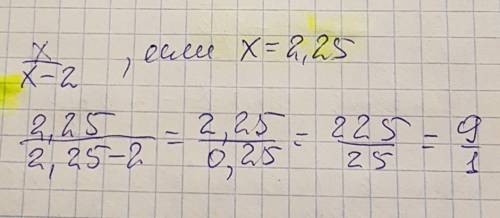 x/(x-2), если x=2,25
2,25/(2,25-2) = 2,25/0,25 = 225/25 = 9/1